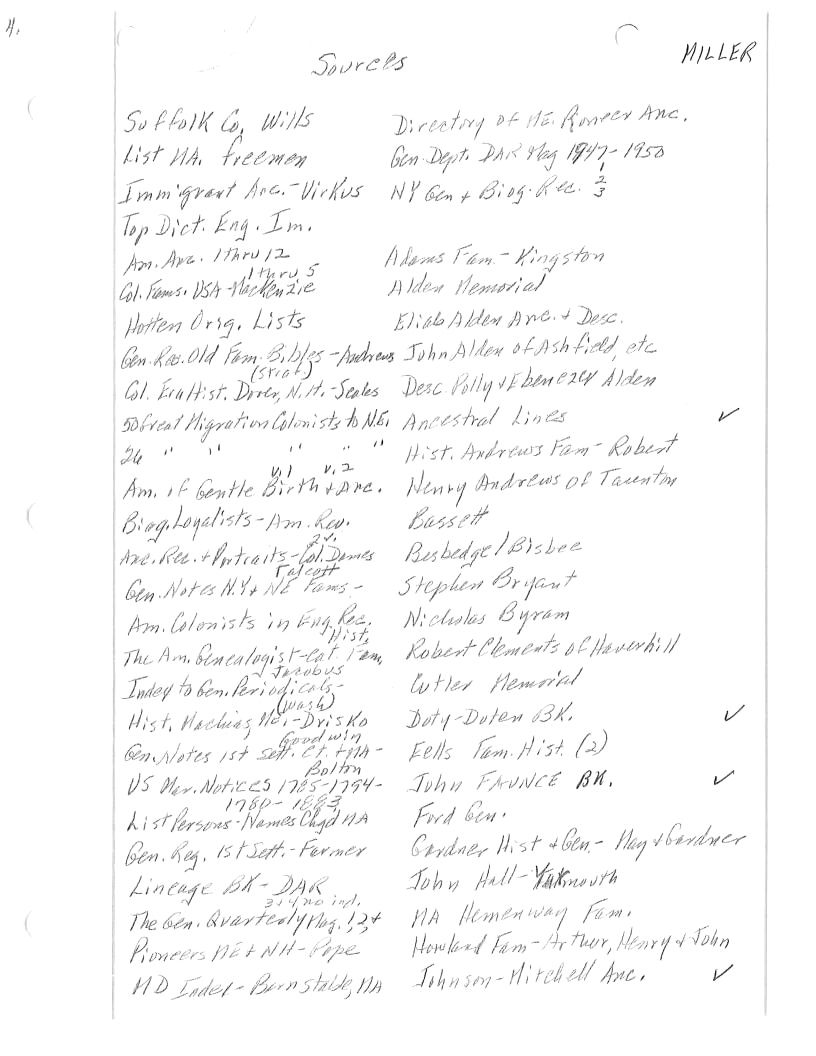 4.
MILLER
Sources
Suffolk Co. Wills
List MA. freemen
Immigrant Anc.-Virkus
Top Dict. Eng. Im.
Am. Anc. 1 thru 12
1 thru 5
Col. Fams. USA-MacKenzie
Hotten Orig. Lists
Gen. Rec. Old Fam. Bibles-Andrews
Col. Era Hist. Dover, N.H.-Scales
50 Great Migration Colonists to N.E.
26 " " " " "
v.1 v.2
Am. of Gentle Birth & Anc.
Biog. Loyalists-Am. Rev.
2v.
Anc. Rec. & Portraits-Col. Dames
Talcott
Gen. Notes N.Y & NE Fams-
Am. Colonists in Eng. Rec.
Hist.
The Am. Genealogist-Cat Fam.
Jacobus
Index to Gen. Periodicals-
(Wash)
Hist. Machias, Me.-Drisko
Goodwin
Gen. Notes 1st Sett. Ct. & MA-
Bolton
US Mar. Notices 1785-1794-
1780-1883
List Persons-Names Chgd MA
Gen. Reg. 1st Sett.-Farmer
Lineage BK-DAR
3+4 no ind.
The Gen. Quarterly Mag. 1,2,+
Pioneers ME & NH-Pope
MD Index-Barnstable, MA
Directory of ME. Pioneer Anc.
Gen. Dept. DAR Mag 1947-1950
NY Gen & Biog. Rec. 1 2 3
Adams Fam-Kingston
Alden Memorial
Eliab Alden Anc. & Desc.
John Alden of Ashfield, etc
Desc. Polly & Ebenezer Alden
Ancestral Lines ✓
Hist. Andrews Fam-Robert
Henry Andrews of Taunton
Bassett
Besbedge/Bisbee
Stephen Bryant
Nicholas Byram
Robert Clements of Haverhill
Cutler Memorial
Doty-Doten BK. ✓
Eells Fam. Hist. (2)
John FAUNCE BK. ✓
Ford Gen.
Gardner Hist & Gen.-May & Gardner
John Hall-Yarmouth
MA Hemenway Fam.
Howland Fam-Arthur, Henry & John
Johnson-Mitchell Anc. ✓